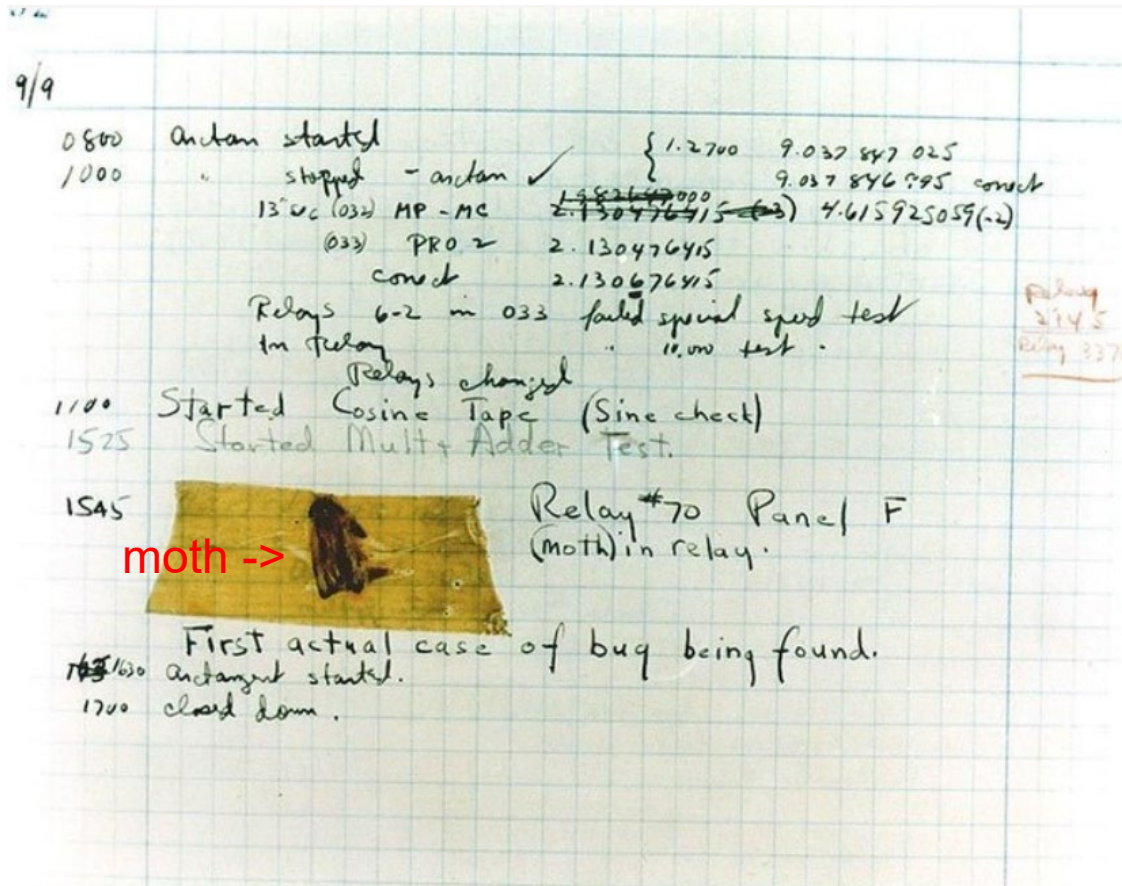 9/9
0800 arctan started { 1.2700 9.037 847 025
1000 " stopped - arctan ✓ 9.037 846 995 correct
13"uc (032) MP - MC 2.130476415 (-3) 4.615925059(-2)
(033) PRO 2 2.130476415
correct 2.130676415
Relays 6-2 in 033 failed special speed test
In Relay " 10.000 test .
Relay
2145
Relay 337
Relays changed
1100 Started Cosine Tape (Sine check)
1525 Started Mult + Adder Test.
1545 Relay #70 Panel F
(moth) in relay.
moth ->
First actual case of bug being found.
1630 arctangent started.
1700 closed down .